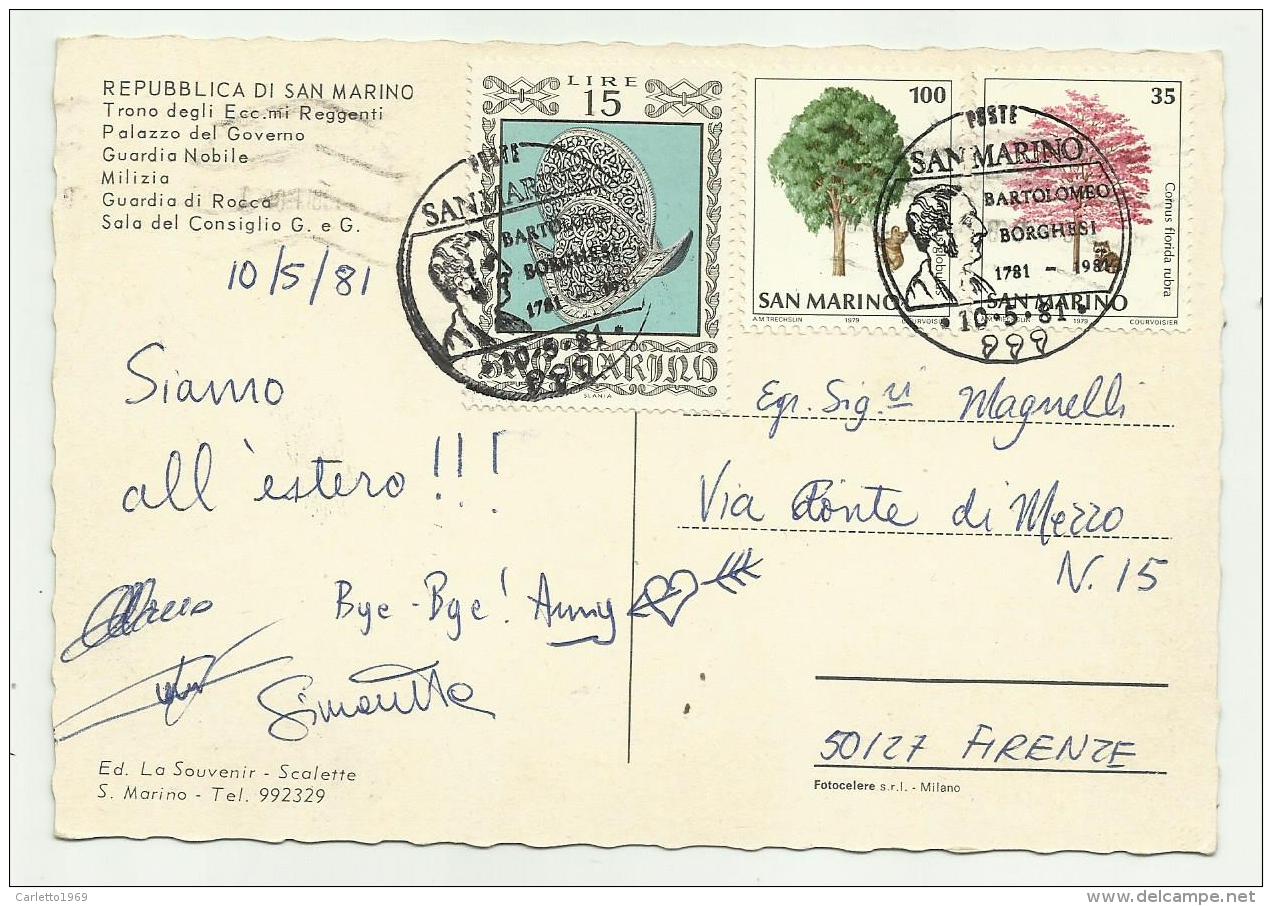 REPUBBLICA DI SAN MARINO
Trono degli Ecc.mi Reggenti
Palazzo del Governo
Guardia Nobile
Milizia
Guardia di Rocca
Sala del Consiglio G. e G.
10/5/81
Siamo
all'estero!!!
Bye-Bye! Anny
Simonetta
Ed. La Souvenir - Scalette
S. Marino - Tel. 992329
LIRE
15
SAN MARINO
SLANIA
POSTE
SAN MAR
BARTOLO
BORGHESI
1781 - 1981
10.5.81
100
SAN MARINO
A.M. TRECHSLIN 1979 COURVOISIER
35
Cornus florida rubra
SAN MARINO
1979 COURVOISIER
POSTE
SAN MARINO
BARTOLOMEO
BORGHESI
1781 - 1981
10.5.81
Egr. Sig.ri Magnelli
Via Ponte di Mezzo
N. 15
50127 FIRENZE
Fotocelere s.r.l. - Milano
Carletto1969
delcampe.net